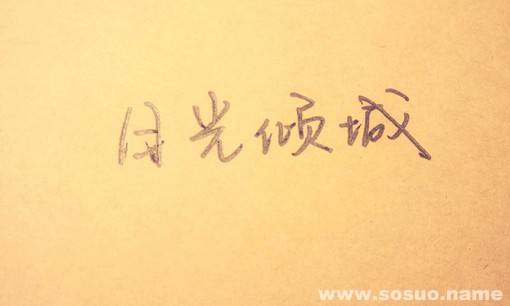 日光倾城
www.sosuo.name